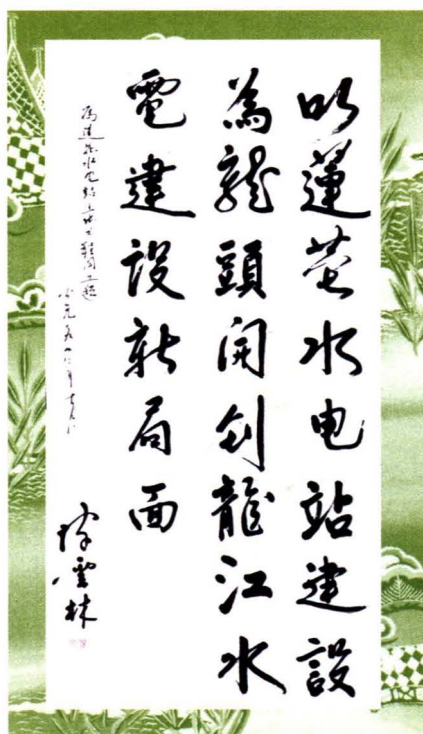 以蓮花水电站建設
為龍頭開創龍江水
電建設新局面
為蓮花水电站
陳雲林